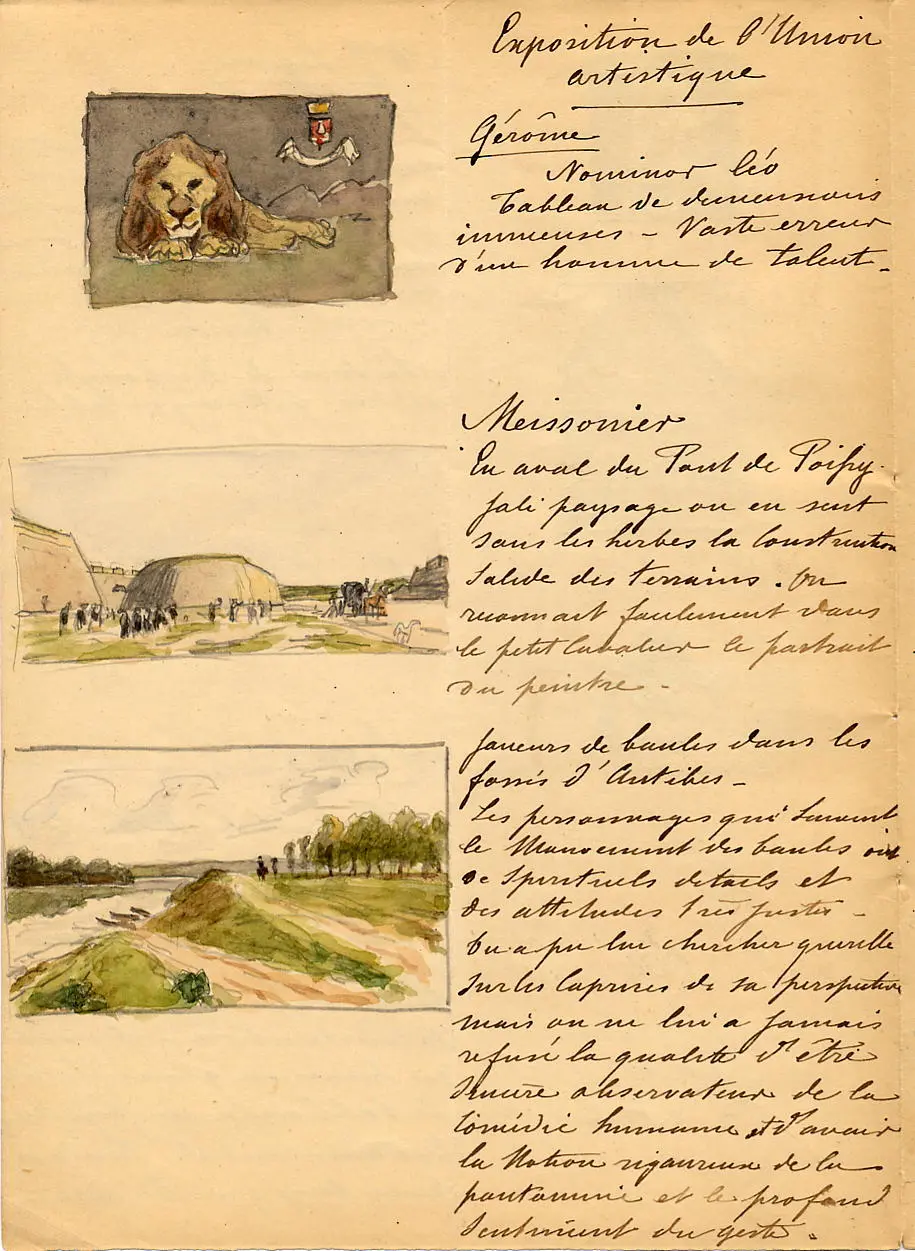 Exposition de l'Union
artistique
Gérôme
Nominor léo
Tableau de dimensions
immenses – Vaste erreur
d'un homme de talent –
Meissonier
En aval du Pont de Poissy.
Joli paysage ou en sent
sous les herbes la construction
solide des terrains. On
reconnait facilement dans
le petit cavalier le portrait
du peintre –
Joueurs de boules dans les
fossés d'Antibes –
Les personnages qui suivent
le mouvement des boules ont
de spirituels détails et
des attitudes très justes –
On a pu lui chercher querelle
sur les caprices de sa perspective
mais on ne lui a jamais
refusé la qualité d'être
sincère observateur de la
comédie humaine et d'avoir
la notion rigoureuse de la
pantomine et le profond
sentiment du geste.